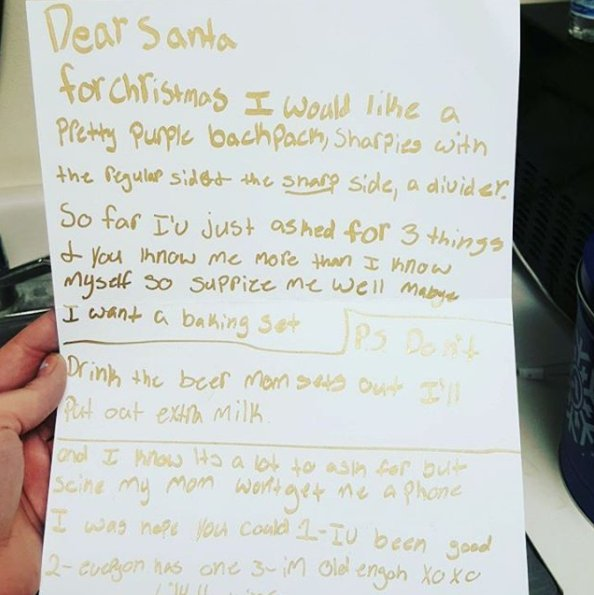 Dear Santa
for christmas I would like a
Pretty Purple backpack, Sharpies with
the regular side & the sharp side, a divider.
So far I'v just asked for 3 things
& you know me more than I know
myself so supprize me well mabye
I want a baking set
P.S. Don't
Drink the beer Mom sets out I'll
Put out extra milk
and I know its a lot to ask for but
seine my mom won't get me a phone
I was hope you could 1-Iv been good
2-everyon has one 3-im old engoh xoxo